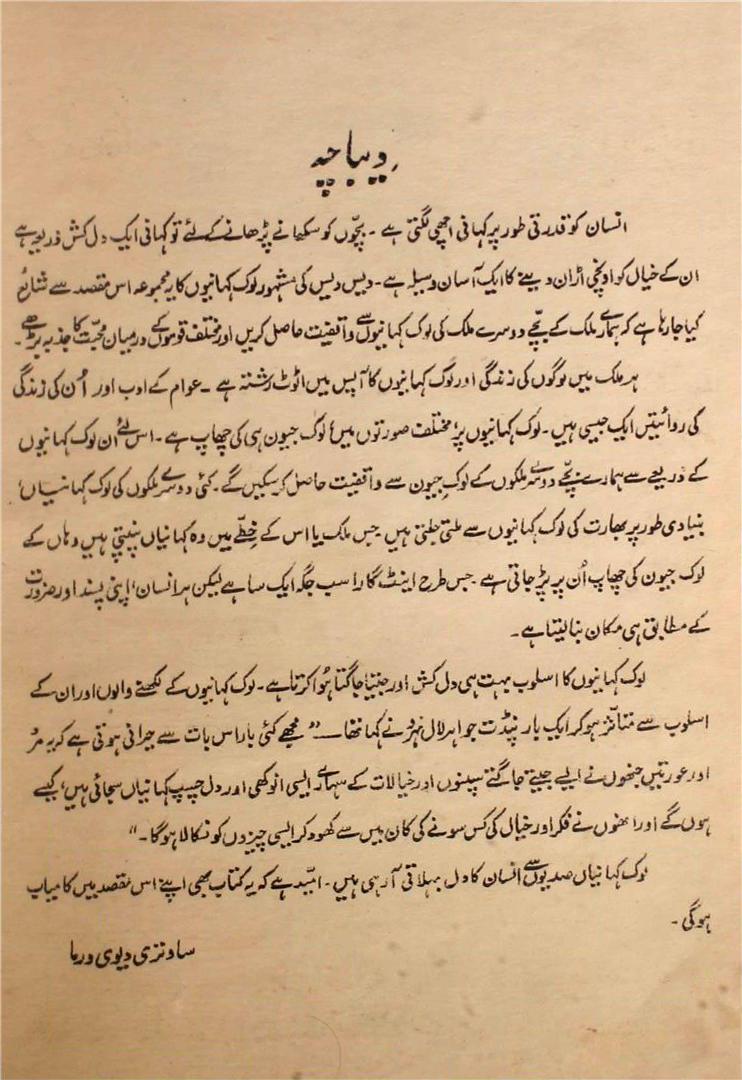 دیباچہ
انسان کو قدرتی طور پر کہانی اچھی لگتی ہے ۔ بچّوں کو سکھانے پڑھانے کے لئے تو کہانی ایک دل کش ذریعہ ہے
ان کے خیال کو اونچی اڑان دینے کا ایک آسان وسیلہ ہے ۔ دیس دیس کی مشہور لوک کہانیوں کا یہ مجموعہ اس مقصد سے شائع
کیا جا رہا ہے کہ ہمارے ملک کے بچّے دوسرے ملک کی لوک کہانیوں سے واقفیت حاصل کریں اور مختلف قوموں کے درمیان محبّت کا جذبہ بڑھے ۔
ہر ملک میں لوگوں کی زندگی اور لوک کہانیوں کا آپس میں اٹوٹ رشتہ ہے ۔ عوام کے ادب اور اُن کی زندگی
کی روائیتیں ایک جیسی ہیں ۔ لوک کہانیوں پر، مختلف صورتوں میں، لوک جیون ہی کی چھاپ ہے ۔ اس لئے ان لوک کہانیوں
کے ذریعے سے ہمارے بچّے دوسرے ملکوں کے لوک جیون سے واقفیت حاصل کر سکیں گے ۔ کئی دوسرے ملکوں کی لوک کہانیاں،
بنیادی طور پر بھارت کی لوک کہانیوں سے ملتی جلتی ہیں جس ملک یا اس کے خِطّے میں وہ کہانیاں پنپتی ہیں وہاں کے
لوک جیون کی چھاپ اُن پر پڑ جاتی ہے ۔ جس طرح اینٹ گارا سب جگہ ایک سا ہے لیکن ہر انسان، اپنی پسند اور ضرورت
کے مطابق ہی مکان بنا لیتا ہے ۔
لوک کہانیوں کا اسلوب بہت ہی دل کش اور جیتا جاگتا ہُوا کرتا ہے ۔ لوک کہانیوں کے لکھنے والوں اور ان کے
اسلوب سے متاثر ہو کر ایک بار پنڈت جواہر لال نہرو نے کہا تھا ـــ ”مجھے کئی بار اس بات سے حیرانی ہوتی ہے کہ یہ مرد
اور عورتیں جنھوں نے ایسے جیتے جاگتے سپنوں اور خیالات کے سہارے ایسی انوکھی اور دل چسپ کہانیاں سجائی ہیں، کیسے
ہوں گے اور انھوں نے فکر اور خیال کی کس سونے کی کان میں سے کھود کر ایسی چیزوں کو نکالا ہوگا ۔"
لوک کہانیاں صدیوں سے انسان کا دل بہلاتی آ رہی ہیں ۔ امیّد ہے کہ یہ کتاب بھی اپنے اس مقصد میں کامیاب
ہوگی ۔
ساوتری دیوی ورما